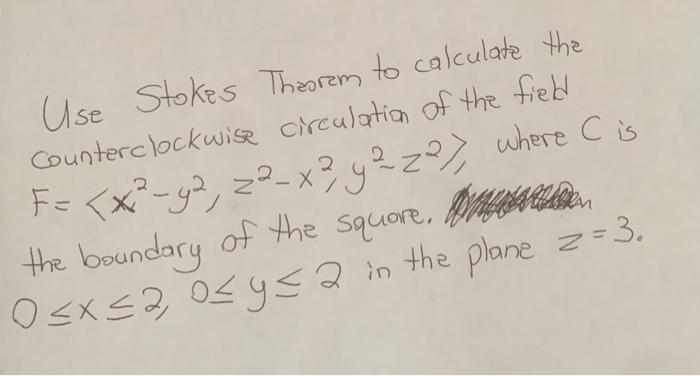 Use Stokes Theorem to calculate the
counterclockwise circulation of the field
F= <x²-y², z²-x², y²-z²>, where C is
the boundary of the square.
0≤x≤2, 0≤y≤2 in the plane z=3.